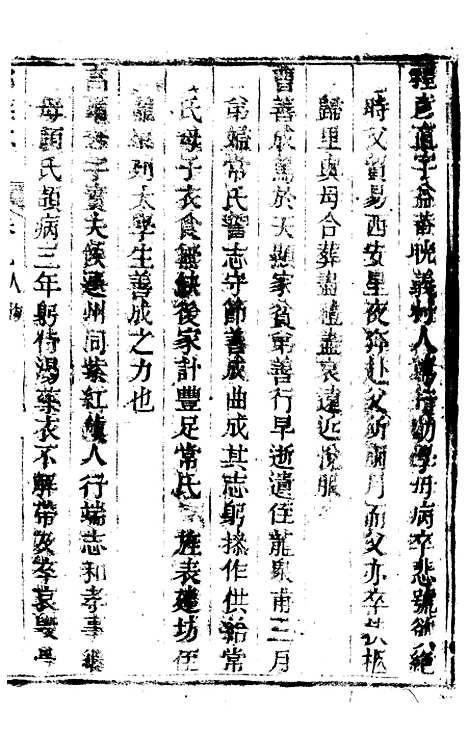 程彥直字益菴晄義村人端行勤學母病卒悲號欲絕
時父貿易西安星夜奔赴父所兩月而父亦卒扶柩
歸里與母合葬盡禮盡哀遠近悅服
曹善成篤於天顯家貧弟善行早逝遺侄龍泉甫三月
弟婦常氏誓志守節善成曲成其志躬操作供給常
氏母子衣食無缺後家計豐足常氏旌表建坊侄
龍泉列太學生善成之力也
字實夫候選州同紫紅人行端志和孝事繼
母顏氏病三年躬侍湯藥衣不解帶及卒哀毀
人物